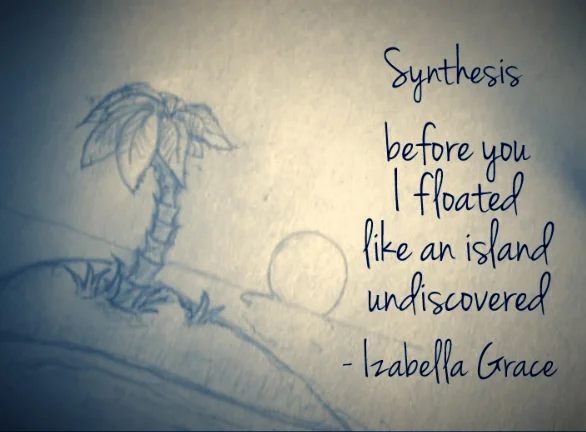 Synthesis
before you
I floated
like an island
undiscovered
- Izabella Grace